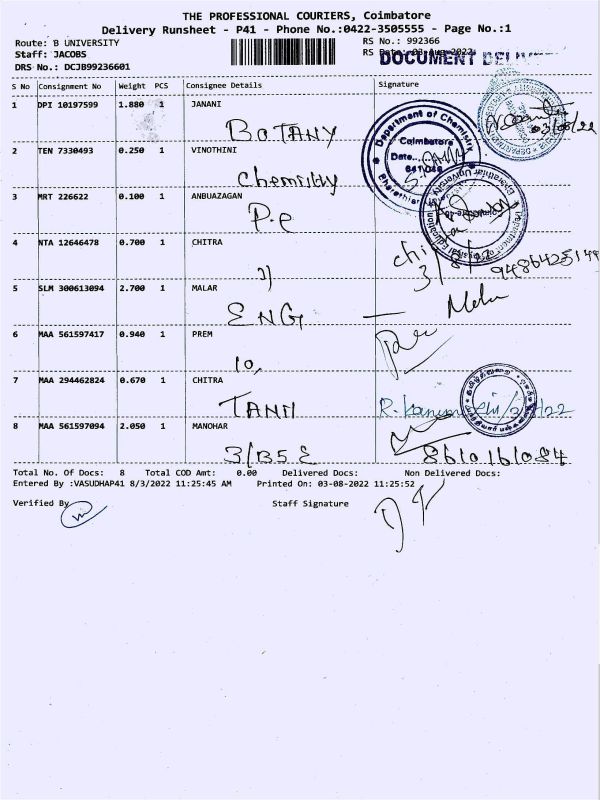 THE PROFESSIONAL COURIERS, Coimbatore
Delivery Runsheet - P41 - Phone No.:0422-3505555 - Page No.:1
Route: B UNIVERSITY RS No.: 992366
Staff: JACOBS RS Date: 03-Aug-2022
DOCUMENT
DRS No.: DCJB99236601
S No Consignment No Weight PCS Consignee Details Signature
1 DPI 10197599 1.880 1 JANANI
BOTANY 03/08/22
2 TEN 7330493 0.250 1 VINOTHINI
Chemistry
Department of Chemistry
Coimbatore
Date...
641 046
3 MRT 226622 0.100 1 ANBUAZAGAN
P.e
4 NTA 12646478 0.700 1 CHITRA
5 SLM 300613094 2.700 1 MALAR
ENG
6 MAA 561597417 0.940 1 PREM
10,
7 MAA 294462824 0.670 1 CHITRA
8 MAA 561597094 2.050 1 MANOHAR
8610161084
Total No. Of Docs: 8 Total COD Amt: 0.00 Delivered Docs: Non Delivered Docs:
Entered By :VASUDHAP41 8/3/2022 11:25:45 AM Printed On: 03-08-2022 11:25:52
Verified By Staff Signature